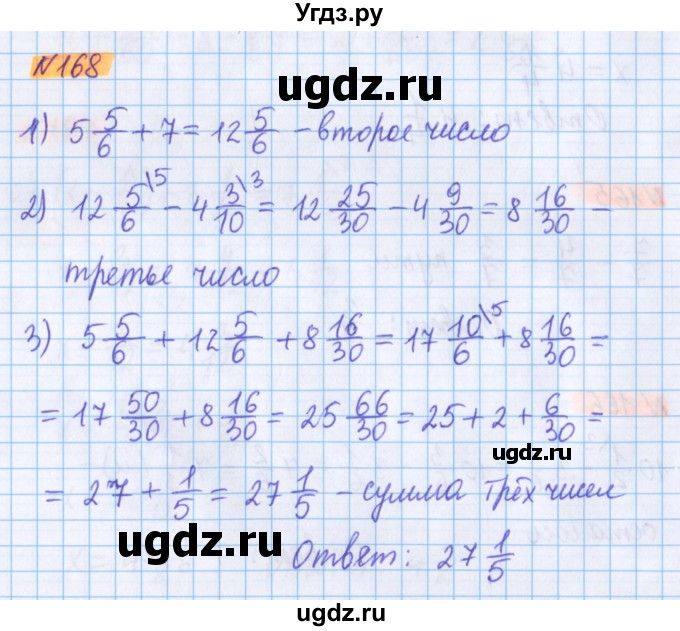 Угдз.ру
N168
ugdz.ru
1) 5 5/6 + 7 = 12 5/6 - второе число
2) 12 5/6 \5 - 4 3/10 \3 = 12 25/30 - 4 9/30 = 8 16/30 -
третье число
ugdz.ru
3) 5 5/6 + 12 5/6 + 8 16/30 = 17 10/6 \5 + 8 16/30 =
= 17 50/30 + 8 16/30 = 25 66/30 = 25 + 2 + 6/30 =
ugdz.ru
= 27 + 1/5 = 27 1/5 - сумма трёх чисел
ugdz.ru
Ответ: 27 1/5
ugdz.ru